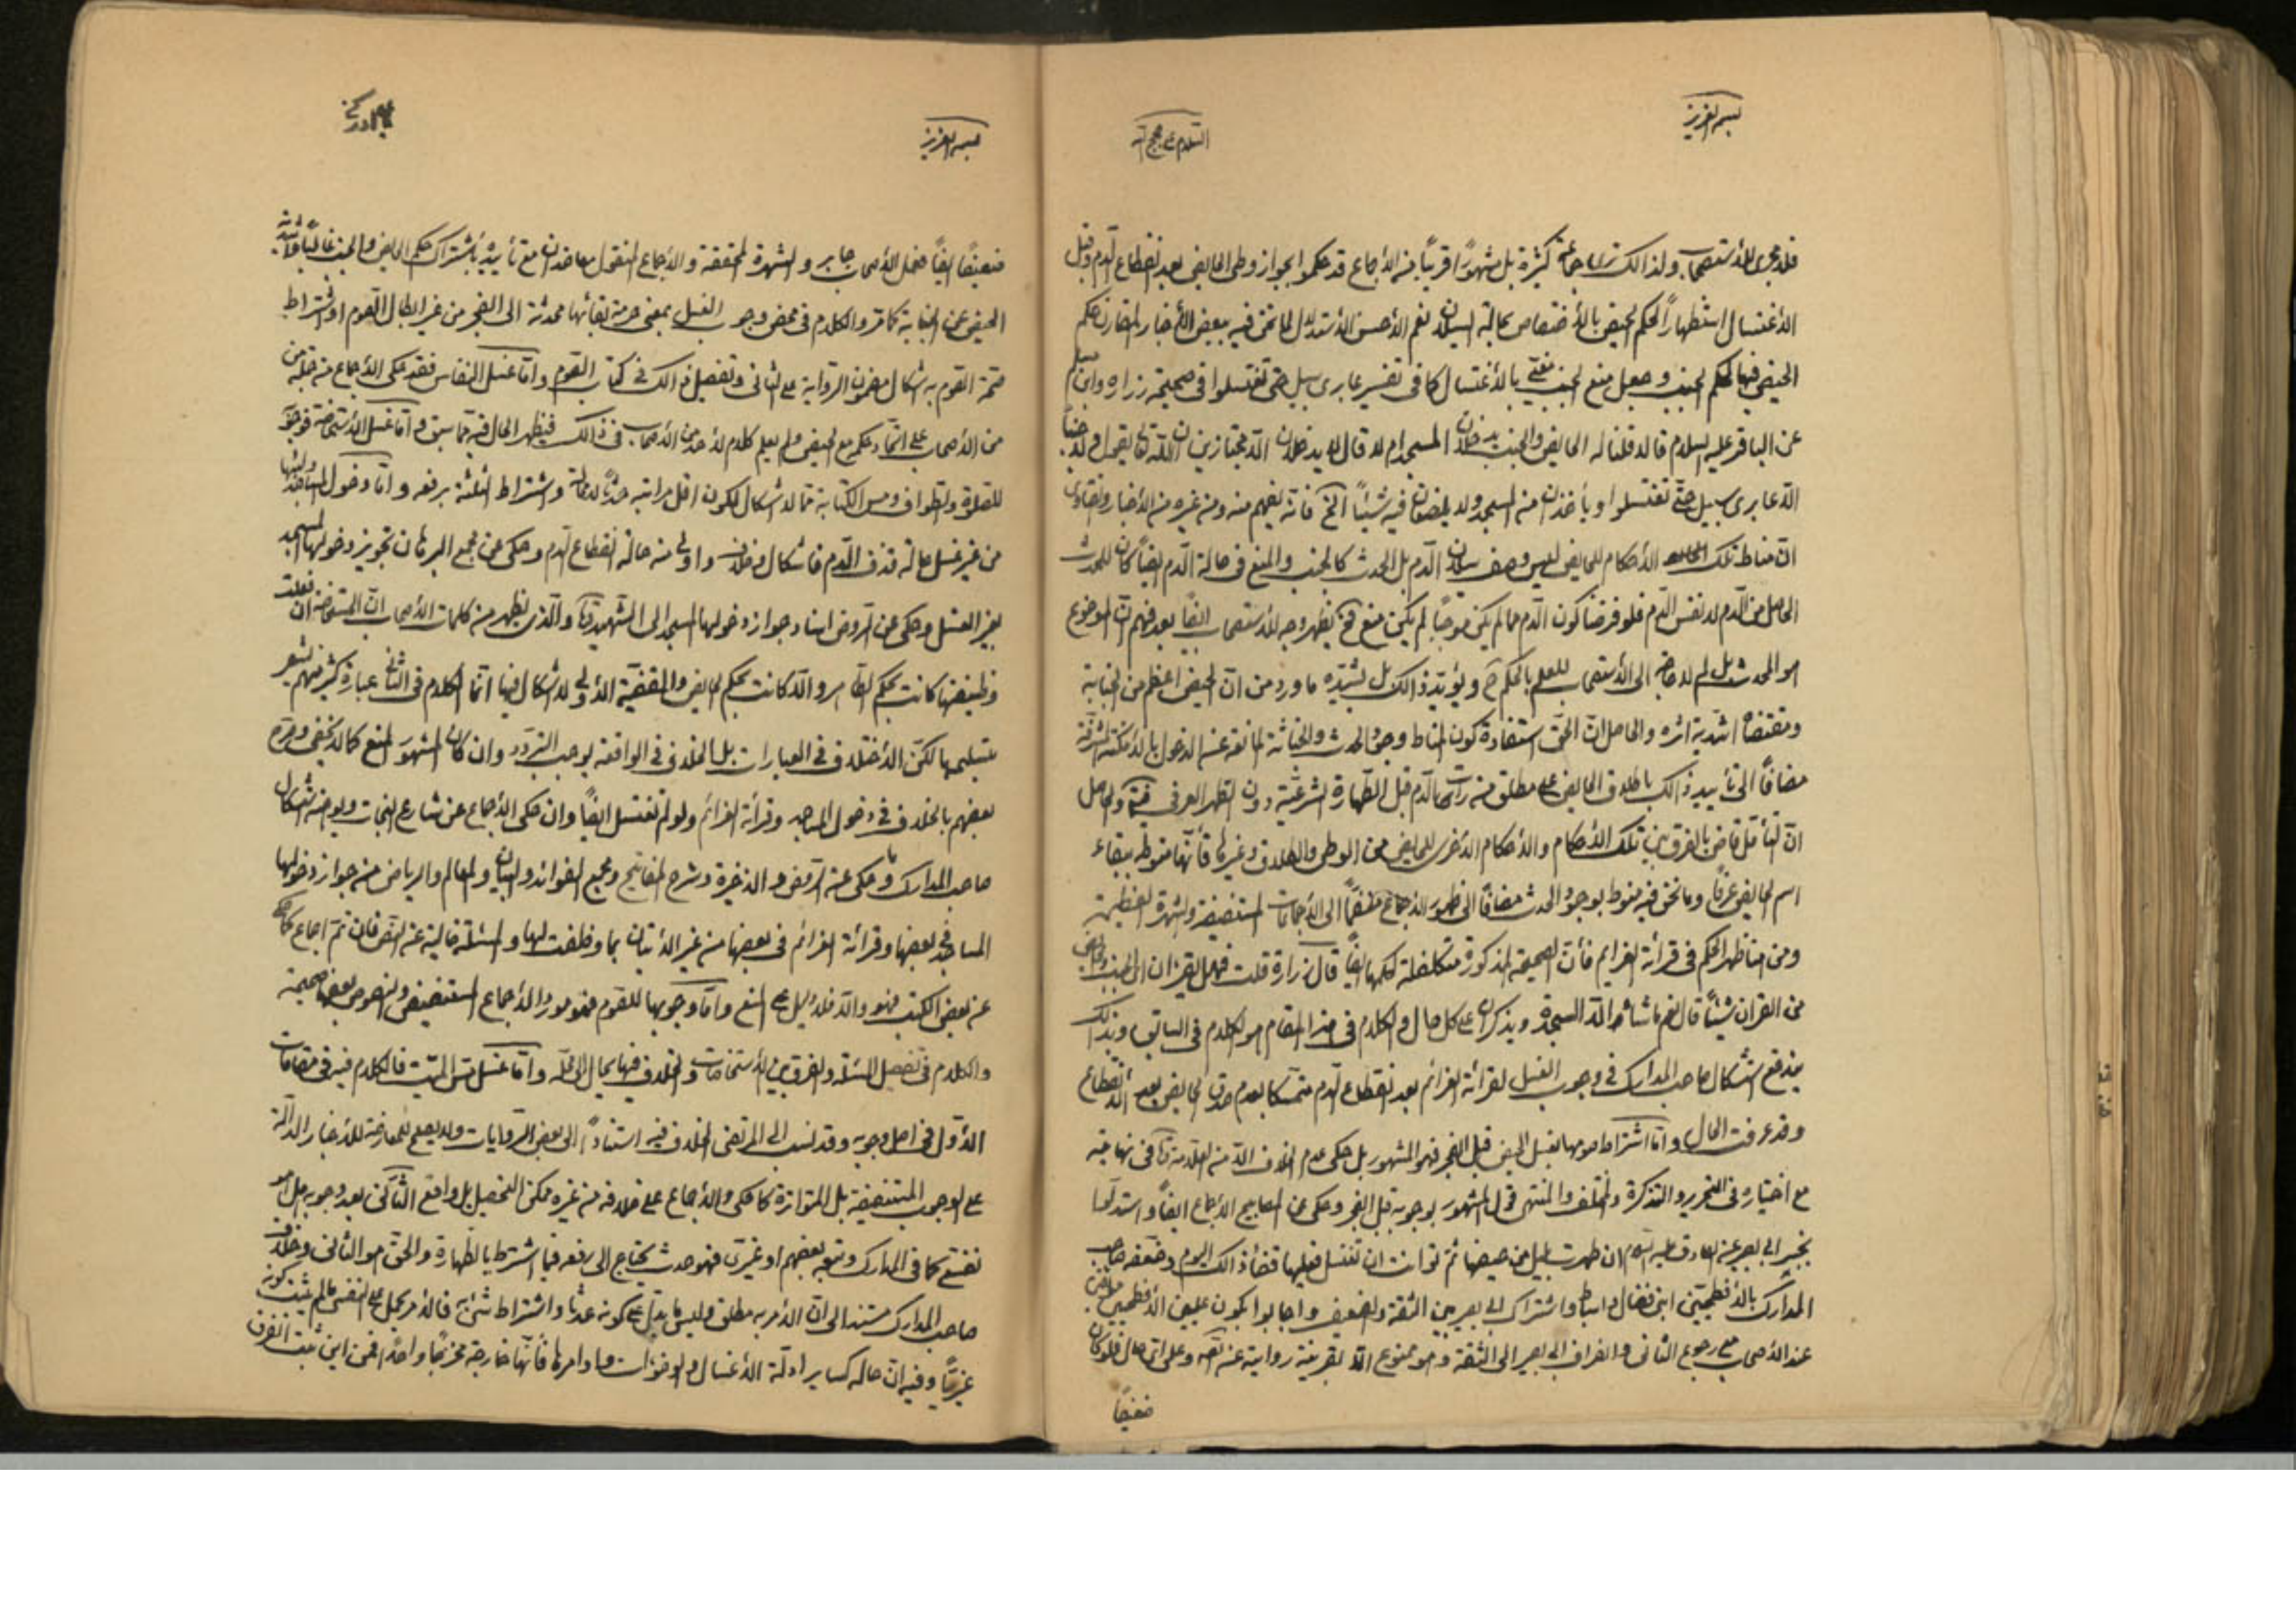 بسم العزيز
السلام على حجج الله
فلا مجرى للأستصحاب ولذالك ترى جماعة كثيرة بل مشهورًا قريبًا من الأجماع قد حكموا بجواز وطى الحايض بعد انقطاع الدم وقبل
الأغتسال استظهارًا لحكم الحيض بالأختصاص بحالة السيلان نعم الأحسن الأستدلال لما نحن فيه ببعض الأخبار المقارن حكم
الحيض فيها لحكم الجنب وجعل منع الجنب مغيّى بالأغتسال كما فى تفسير عابرى سبيل حتى تغتسلوا فى صحيحة زراره وابن مسلم
عن الباقر عليه السلام قالا قلنا له الحايض والجنب يدخلان المسجد ام لا قال لا يدخلان الا مجتازين ان الله تعالى يقول ولا جنبًا
الا عابرى سبيل حتى تغتسلوا ويأخذان من المسجد ولا يضعان فيه شيئًا الخ فانه يفهم منه ومن غيره من الأخبار والفتاوى
ان مناط تلك الأحكام للحايض ليس وصف سيلان الدم بل الحدث كالجنب والمنع فى حالة الدم ايضًا كان للحدث
الحاصل من الدم لا نفس الدم فلو فرضنا كون الدم مما لم يكن موجبًا لم يكن منع فح يظهر وجه للأستصحاب ايضًا بعد فهم ان الموضوع
هو المحدث بل لا حاجة الى الأستصحاب للعلم بالحكم ح ويؤيد ذالك بل يشيده ما ورد من ان الحيض اعظم من الجنابة
ومقتضاه اشدية اثره والحاصل ان الحق استفادة كون المناط وجود الحدث والخباثة المانعة عن الدخول بالأمكنة المشرفة
مضافًا الى تأييد ذالك باطلاق الحايض على مطلق من رات الدم قبل الطهارة الشرعية دون التطهر العرفى والحاصل
ان التأمل قاض بالفرق بين تلك الأحكام والأحكام الأخرى للحايض من الوطى والطلاق وغيرها فأنها منوطة ببقاء
اسم الحايض عرفًا وما نحن فيه منوط بوجود الحدث مضافًا الى ظهور الأجماع منضمًا الى الأجماعات المستفيضة والشهرة العظيمة
ومن هنا ظهر الحكم فى قرائة العزايم فأن الصحيحة المذكورة متكفلة لحكمها ايضًا قال زرارة قلت فهل يقرئان الجنب والحايض
من القران شيئًا قال نعم ما شائا الا السجدة ويذكران على كل حال والكلام فى هذا المقام هو الكلام فى السابق وبذالك
يندفع اشكال صاحب المدارك فى وجوب الغسل لقرائة العزائم بعد انقطاع الدم متمسكا بعدم صدق الحايض بعد الأنقطاع
وقد عرفت الحال واما اشتراط صومها بغسل الحيض قبل الفجر فهو المشهور بل حكى عدم الخلاف الا من العلامة فى نهايته
مع اختياره فى التحرير والتذكرة والمختلف والمنتهى قول المشهور بوجوبه قبل الفجر وحكى عن المصابيح الأجماع ايضًا واستدلوا
بخبر ابى بصير عن الصادق عليه السلام ان طهرت بليل من حيضها ثم توانت ان تغتسل فعليها قضاء ذالك اليوم وضعفه صاحب
المدارك بالأفطحيين ابن فضال واسباط واشتراك ابى بصير بين الثقة والضعيف واجابوا بكون الأفطحيين
عند الأصحاب مع رجوع الثانى وانصراف ابى بصير الى الثقة وهو ممنوع الا بقرينة رواية عنه وعلى اى حال فلو كان
ضعيفًا
بسم العزيز
ادركنى
ضعيفًا ايضًا فعمل الأصحاب جابر والشهرة المحققة والأجماع المنقول معاضدان مع تأييده بأشتراك حكم الحايض والجنب غالبًا واشدية
الحيض عن الجنابة كما مر والكلام فى محض وجوب الغسل بمعنى حرمة بقائها محدثة الى الفجر من غير ابطال الصوم او اشتراط
صحة الصوم به اشكال مضمون الرواية على الثانى وتفصيل ذالك فى كتاب الصوم واما غسل النفاس فقد حكى الأجماع من جملة من
من الأصحاب على اتحاد حكمه مع الحيض ولم يعلم كلام لأحد من الأصحاب فى ذالك فيظهر الحال فيه مما سبق واما غسل الأستحاضة فوجوبه
للصلوة والطواف ومس الكتابة مما لا اشكال لكون اقل مراتبه حدثًا لا محالة واشتراط الثلثة برفعه واما دخول المساجد ولبثها
من غير غسل حالة قذف الدم فاشكال وخلاف واولى منه حالة انقطاع الدم وحكى عن مجمع البرهان تجويز دخولها المسجد
بغير الغسل وحكى عن الروض اسناد جواز دخولها المسجد الى الشهيد والذى يظهر من كلمات الأصحاب ان المستحاضة ان فعلت
وظيفتها كانت بحكم الطاهر والا كانت بحكم الحايض والقضية الأولى لا اشكال فيها انما الكلام فى الثانى عبارة كثير منهم تشعر
بتسليمها لكن الأختلاف فى العبارات بل الخلاف فى الواقعة يوجب التردد وان كان المشهور المنع كما لا يخفى وصرح
بعضهم بالخلاف فى دخول المساجد وقرائة العزائم ولو لم تغتسل ايضًا وان حكى الأجماع عن شارع النجات ويعارضه اشكال
صاحب المدارك وما حكى عن الروض والذخيرة وشرح المفاتيح ومجمع الفوائد والبيان والمعالم والرياض من جواز دخولها
المساجد بعضها وقرائة العزائم فى بعضها من غير الأتيان بما وظفت لها والمسئلة خالية عن النص فان تم اجماع كما حكى
عن بعض الكتب فهو والا فلا دليل على المنع واما وجوبها للصوم فهو مورد الأجماع المستفيض والنصوص بعضها صحيحة
والكلام فى تفصيل المسئلة والفرق بين الأستحاضات والخلاف فيها يحال الى محله واما غسل مس الميت فالكلام فيه فى مقامات
الأول فى اصل وجوبه وقد نسب الى المرتضى الخلاف فيه استنادًا الى بعض الروايات ولا يصلح للمعارضة للأخبار الدالة
على الوجوب المستفيضة بل المتواترة كما حكى والأجماع على خلافه من غيره ممكن التحصيل بل واقع الثانى بعد وجوبه هل هو
نفسى كما فى المدارك وتبعه بعضهم او غيرى فهو حدث يحتاج الى رفعه فيما اشترط بالطهارة والحق هو الثانى وخلاف
صاحب المدارك مستند الى ان الأمر به مطلق وليس ما يدل على كونه حدثًا واشتراط شئ به فالأمر يحمل على النفسى ما لم يثبت كونه
غيريًا وفيه ان حاله كساير ادلة الأغسال والوضوءات واوامرها فأنها خارجة مخرجًا واحدًا فمن اين ثبت الفرق